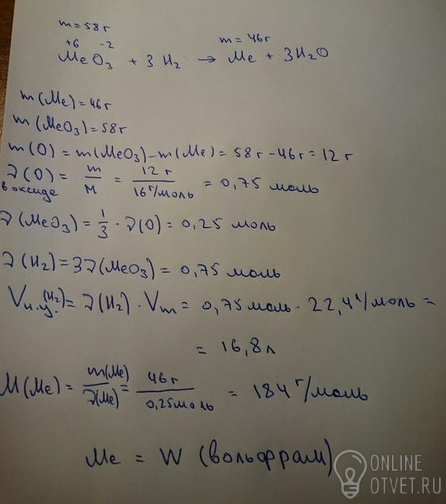 m=58г m=46г
+6 -2
MeO₃ + 3H₂ → Me + 3H₂O
m(Me)=46г
m(MeO₃)=58г
m(O)=m(MeO₃)-m(Me)=58г-46г=12г
ν(O) = m/M = 12г/16г/моль = 0,75 моль
в оксиде
ν(MeO₃)=1/3·ν(O)=0,25 моль
ν(H₂)=3ν(MeO₃)=0,75 моль
Vн.у.(H₂)=ν(H₂)·Vm=0,75моль·22,4л/моль=
=16,8л
M(Me)=m(Me)/ν(Me)=46г/0,25моль=184г/моль
Me = W (вольфрам)
ONLINE
OTVET.RU